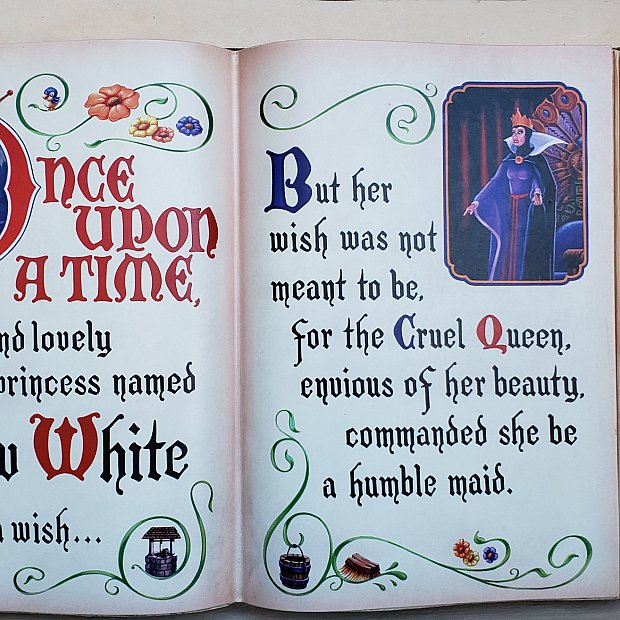 Once
upon
a time,
nd lovely
princess named
w White
a wish...
But her
wish was not
meant to be,
for the Cruel Queen,
envious of her beauty,
commanded she be
a humble maid.